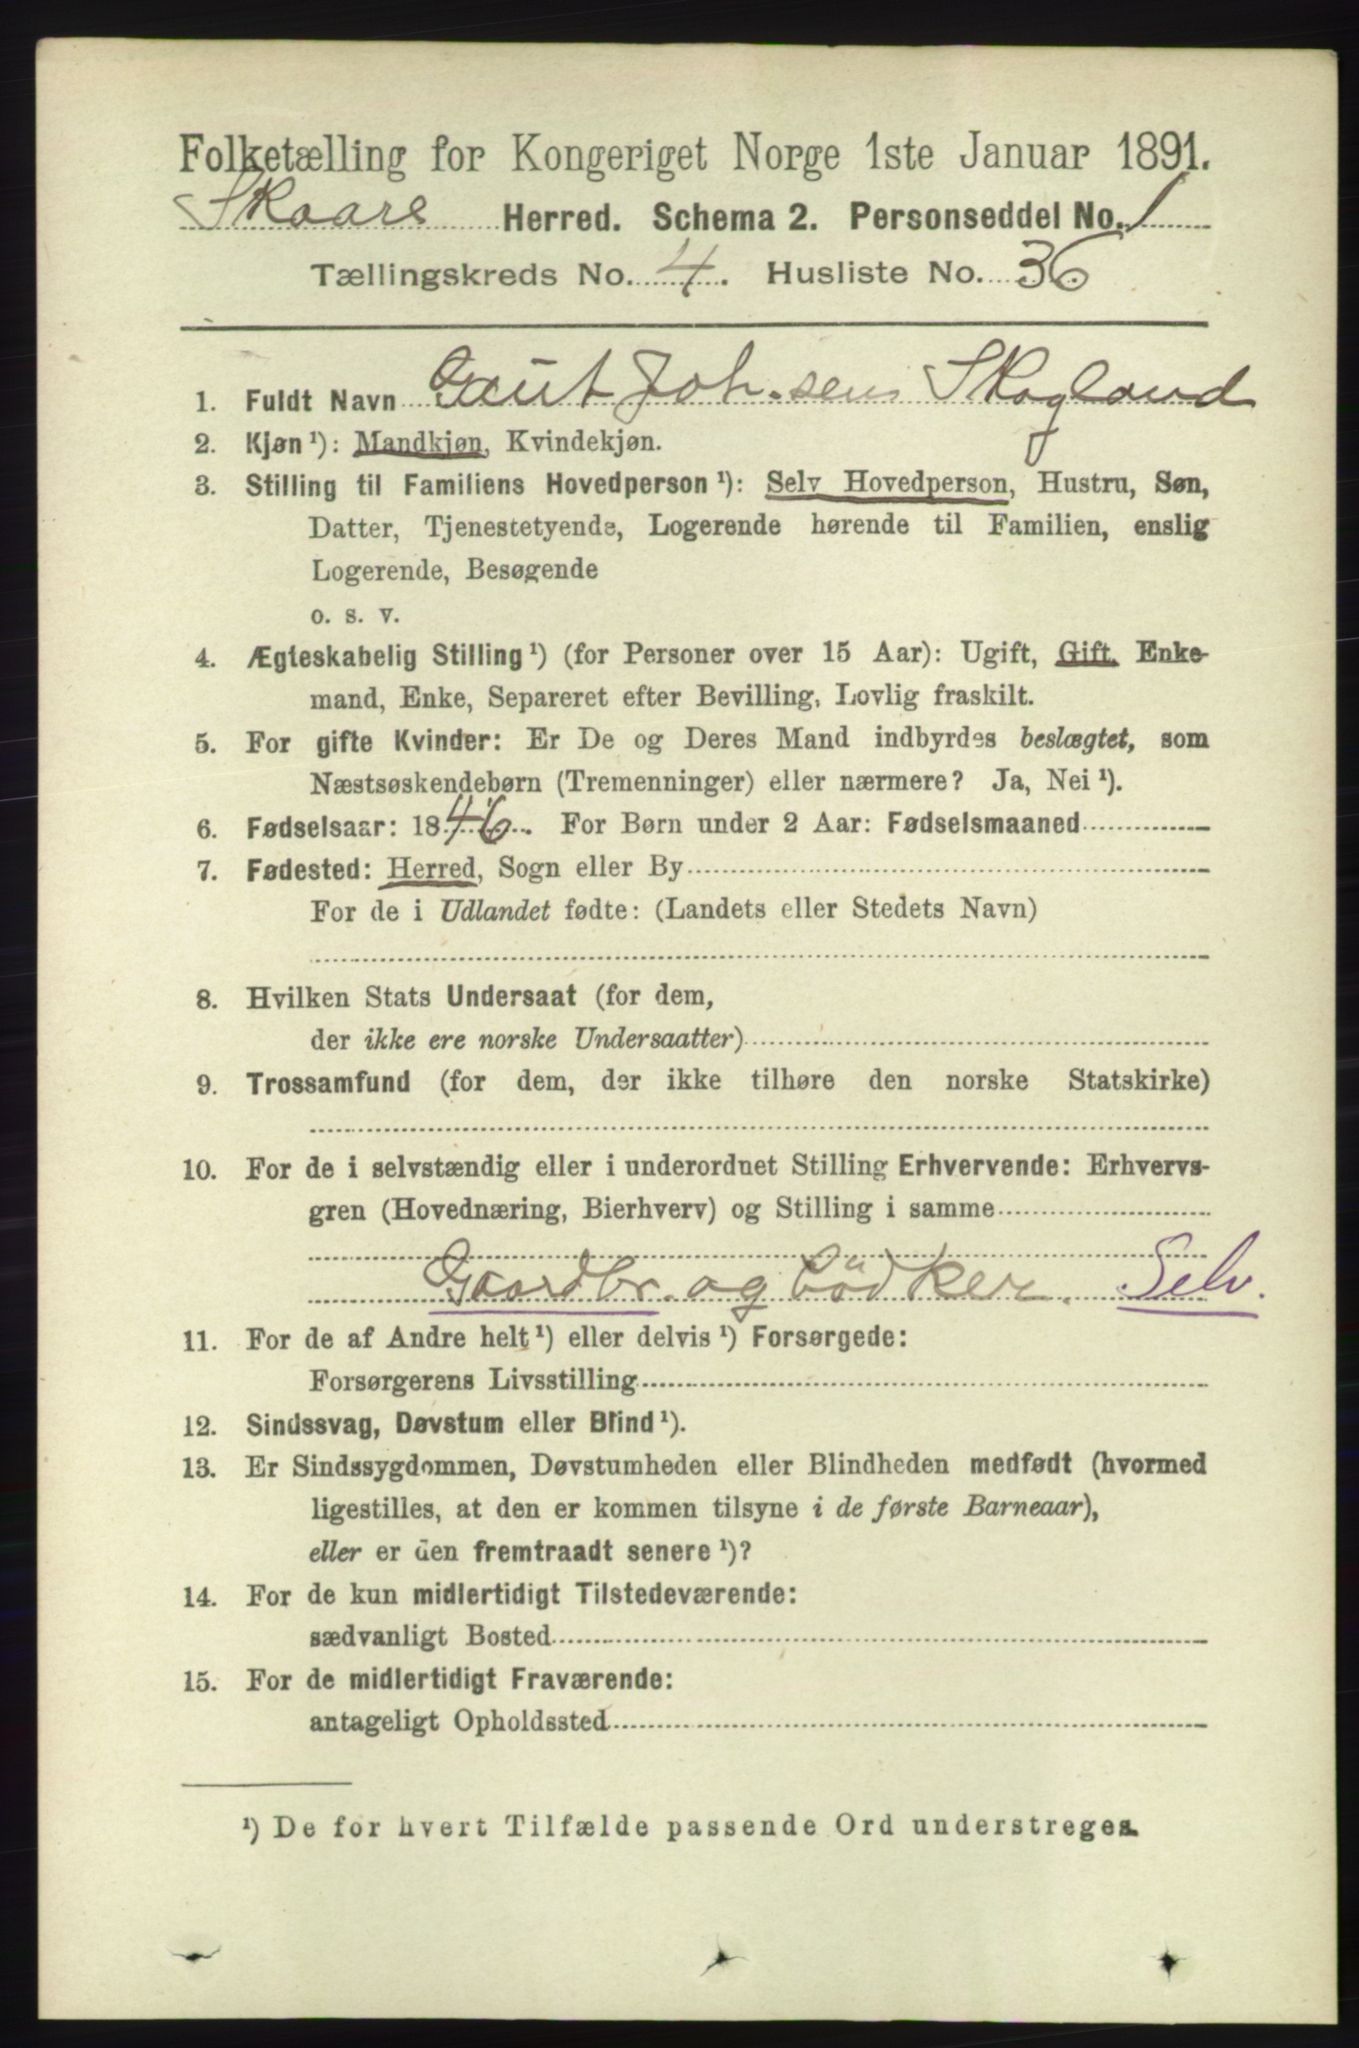 Folketælling for Kongeriget Norge 1ste Januar 1891.
Skaare Herred. Schema 2. Personseddel No. 1
Tællingskreds No. 4. Husliste No. 36
1. Fuldt Navn Gaut Johnsen Skogland
2. Kjøn ¹): Mandkjøn, Kvindekjøn.
3. Stilling til Familiens Hovedperson ¹): Selv Hovedperson, Hustru, Søn,
Datter, Tjenestetyende, Logerende hørende til Familien, enslig
Logerende, Besøgende
o. s. v.
4. Ægteskabelig Stilling ¹) (for Personer over 15 Aar): Ugift, Gift, Enke-
mand, Enke, Separeret efter Bevilling, Lovlig fraskilt.
5. For gifte Kvinder: Er De og Deres Mand indbyrdes beslægtet, som
Næstsøskendebørn (Tremenninger) eller nærmere? Ja, Nei ¹).
6. Fødselsaar: 1846. For Børn under 2 Aar: Fødselsmaaned
7. Fødested: Herred, Sogn eller By
For de i Udlandet fødte: (Landets eller Stedets Navn)
8. Hvilken Stats Undersaat (for dem,
der ikke ere norske Undersaatter)
9. Trossamfund (for dem, der ikke tilhøre den norske Statskirke)
10. For de i selvstændig eller i underordnet Stilling Erhvervende: Erhvervs-
gren (Hovednæring, Bierhverv) og Stilling i samme
Gaardbr. og bödker. Selv.
11. For de af Andre helt ¹) eller delvis ¹) Forsørgede:
Forsørgerens Livsstilling
12. Sindssvag, Døvstum eller Blind ¹).
13. Er Sindssygdommen, Døvstumheden eller Blindheden medfødt (hvormed
ligestilles, at den er kommen tilsyne i de første Barneaar),
eller er den fremtraadt senere ¹)?
14. For de kun midlertidigt Tilstedeværende:
sædvanligt Bosted
15. For de midlertidigt Fraværende:
antageligt Opholdssted
¹) De for hvert Tilfælde passende Ord understreges.